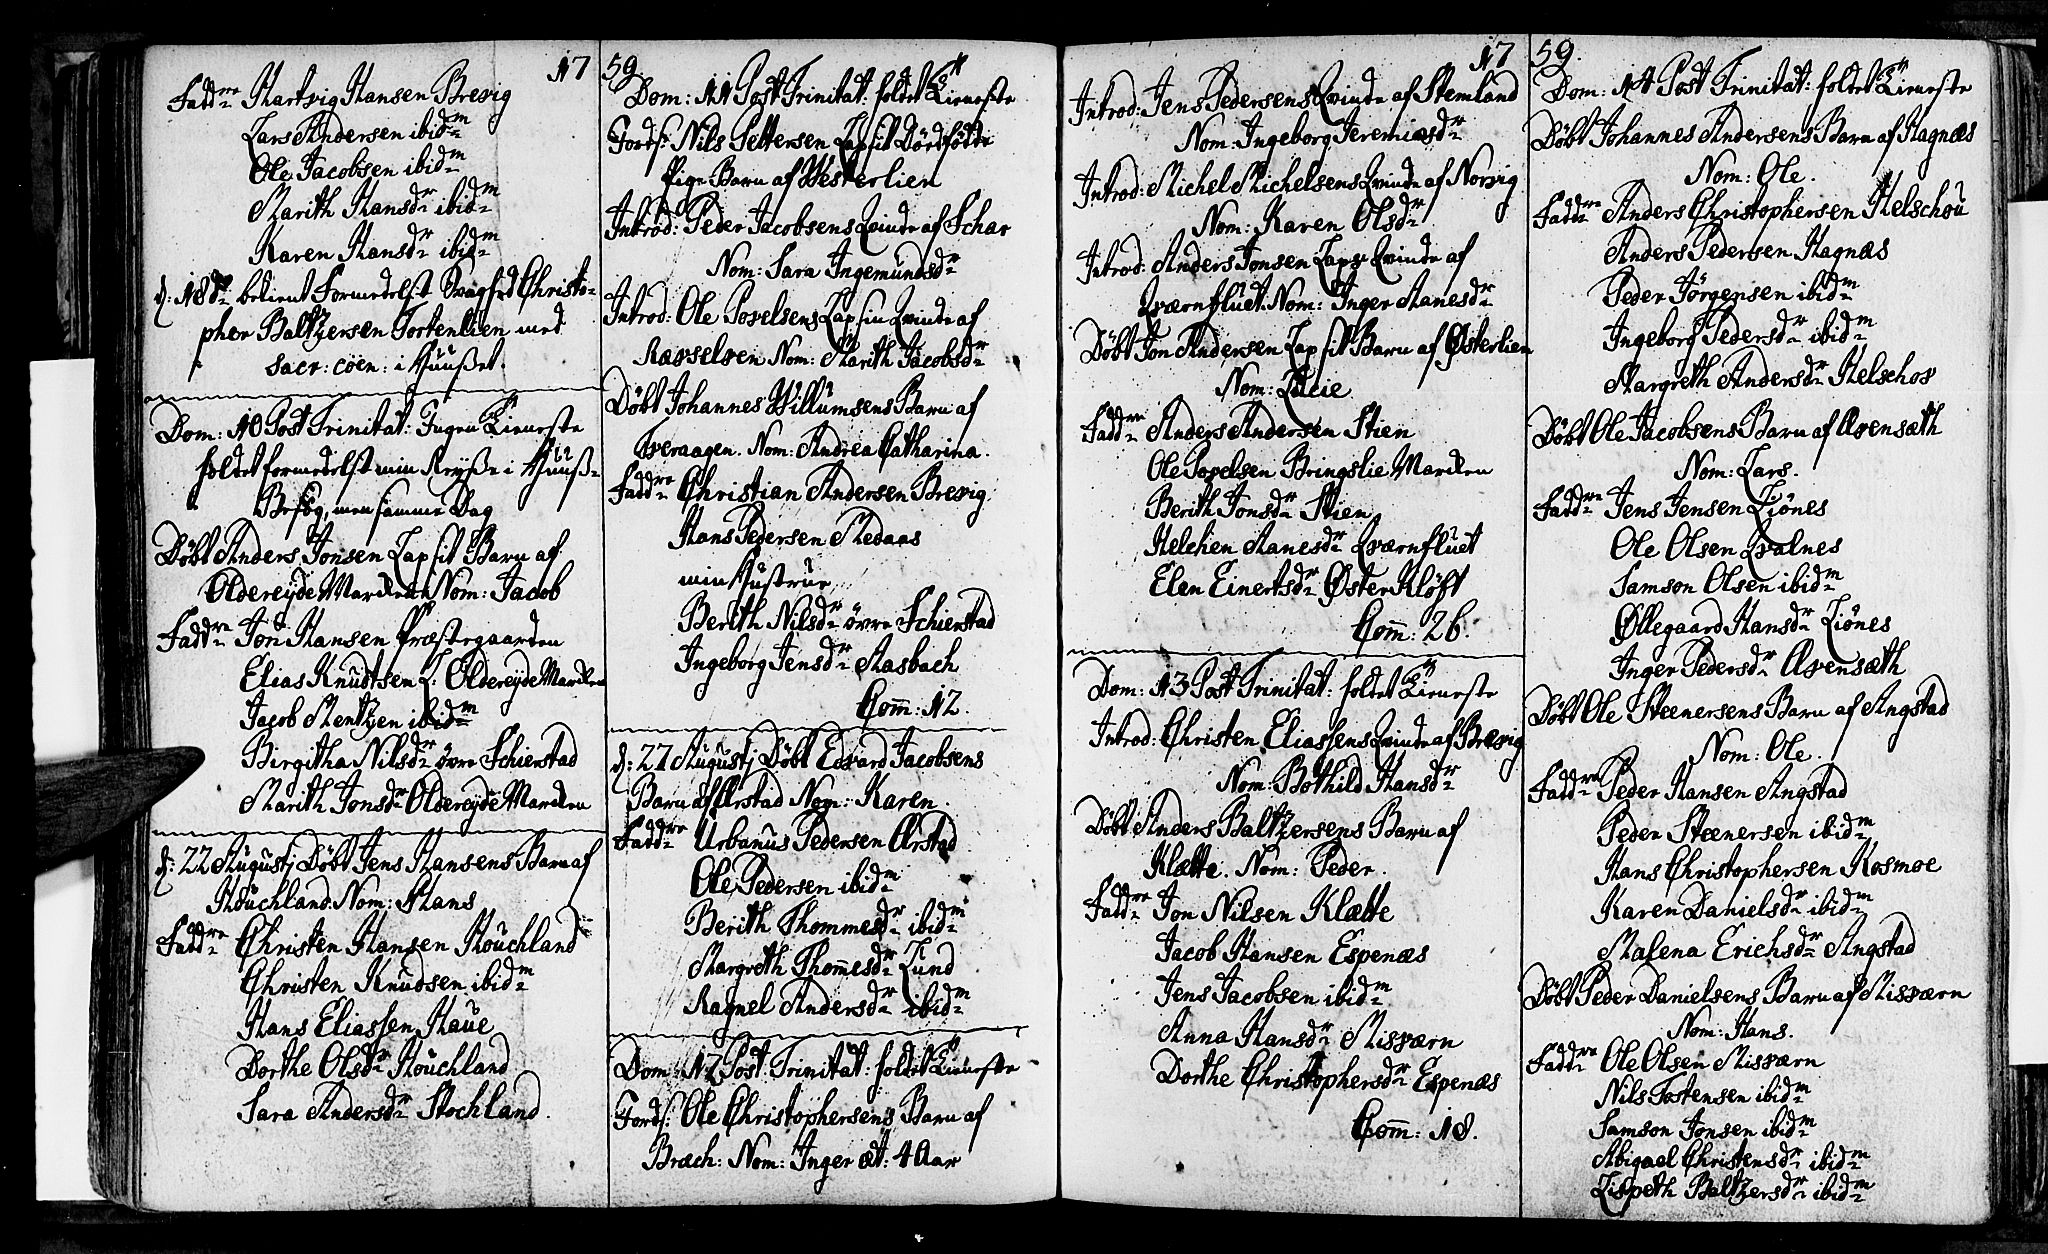 17
Fadd:re Hartvig Hansen Brevig
Lars Andersen ibid:m
Ole Jacobsen ibid:m
Marith Hansd:r ibid:m
Karen Hansd:r ibid:m
d: 18de betient formedelst Svaghed Christo-
pher Baltzersen Tostenlien med
sacr: coen: i Huuset.
Dom: 10 Post Trinitat: Ingen Tieneste
holdet formedelst min Reyße i Huuß-
Besøg, men samme Dag
Døbt Anders Jonsen Lap sit Barn af
Oldereyde Marken Nom: Jacob
Fadd:re Jon Hansen Præstegaarden
Elias Knudtsen L: Oldereyde Marken
Jacob Mentzen ibid:m
Birgitha Nilsd:r øvre Schierstad
Marith Jonsd:r Oldereyde Marken
d: 22 Augustj Døbt Jens Hansens Barn af
Houchland. Nom: Hans
Fadd:re Christen Hansen Houchland
Christen Knudsen ibid:m
Hans Eliassen Haue
Dorthe Olsd:r Houchland
Sara Andersd:r Stochland.
59
Dom: 11 Post Trinitat: holdet Tieneste
Fords: Nils Pettersen Lap sit Dødfødte
Pige Barn af Westerlien
Introd: Peder Jacobsens Qvinde af Schar
Nom: Sara Ingemundsd:r
Introd: Ole Povelsens Lap sin Qvinde af
Røsselven Nom: Marith Jacobsd:r
Døbt Johannes Willumsens Barn af
Tveraagen. Nom: Andrea Catharina.
Fadd:re Christian Andersen Brevig
Hans Pedersen Medaas
min Hustrue
Berith Nilsd:r øvre Schierstad
Ingeborg Jensd:r Aasbach
Com: 12.
d: 27 Augustj Døbt Edvard Jacobsens
Barn af Arstad Nom: Karen.
Fadd:re Urbanus Pedersen Arstad
Ole Pedersen ibid:m
Berith Thommesd:r ibid:m
Margreth Thomesd:r Lund
Ragnel Andersd:r ibid:m
Dom: 12 Post Trinitat: holdet Tieneste
Fords: Ole Christophersens Barn af
Bræch: Nom: Inger æt: 4 Aar
17
Introd: Jens Pedersens Qvinde af Stemland
Nom: Ingeborg Jeremiasd:r
Introd: Michel Michelsens Qvinde af Norvig
Nom: Karen Olsd:r
Introd: Anders Jonsen Laps Qvinde af
Qværnfluet. Nom: Inger Aanesd:r
Døbt Jon Andersen Lap sit Barn af Østerlien
Nom: Lucie
Fadd:re Anders Andersen Stien
Ole Povelsen Bringslie Marken
Berith Jonsd:r Stien
Helchen Aanesd:r Qværnfluet
Elen Einertsd:r Øster Kløft
Com: 26.
Dom: 13 Post Trinitat: holdet Tieneste
Introd: Christen Eliassens Qvinde af Brevig
Nom: Bothild Hansd:r
Døbt Anders Baltzersens Barn af
Klætte. Nom: Peder.
Fadd:re Jon Nilsen Klætte
Jacob Hansen Espenæs
Jens Jacobsen ibid:m
Anna Hansd:r Misværn
Dorthe Christophersd:r Espenæs
Com: 18.
59.
Dom: 14 Post Trinitat: holdet Tieneste
Døbt Johannes Andersens Barn af Hagnæs
Nom: Ole.
Fadd:re Anders Christophersen Helschou
Anders Pedersen Hagnæs
Peder Jørgensen ibid:m
Ingeborg Pedersd:r ibid:m
Margreth Andersd:r Helschov
Døbt Ole Jacobsens Barn af Avensæth
Nom: Lars.
Fadd:re Jens Jensen Liønes
Ole Olsen Qvalnes
Samson Olsen ibid:m
Øllegaard Hansd:r Liønes
Inger Pedersd:r Avensæth
Døbt Ole Steenersens Barn af Angstad
Nom: Ole.
Fadd:re Peder Hansen Angstad
Peder Steenersen ibid:m
Hans Christophersen Kosmoe
Karen Danielsd:r ibid:m
Malena Erichsd:r Angstad
Døbt Peder Danielsens Barn af Misværn
Nom: Hans.
Fadd:re Ole Olsen Misværn
Nils Tostensen ibid:m
Samson Jonsen ibid:m
Abigael Christensd:r ibid:m
Lispeth Baltzersd:r ibid:m